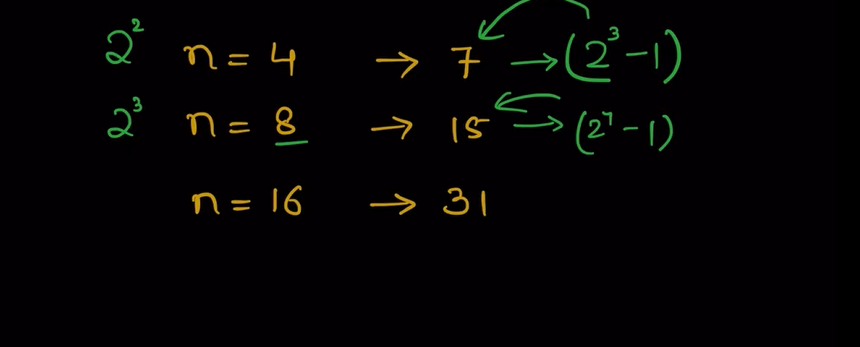 2² n = 4 → 7 → (2³ - 1)
2³ n = 8 → 15 → (2⁴ - 1)
n = 16 → 31